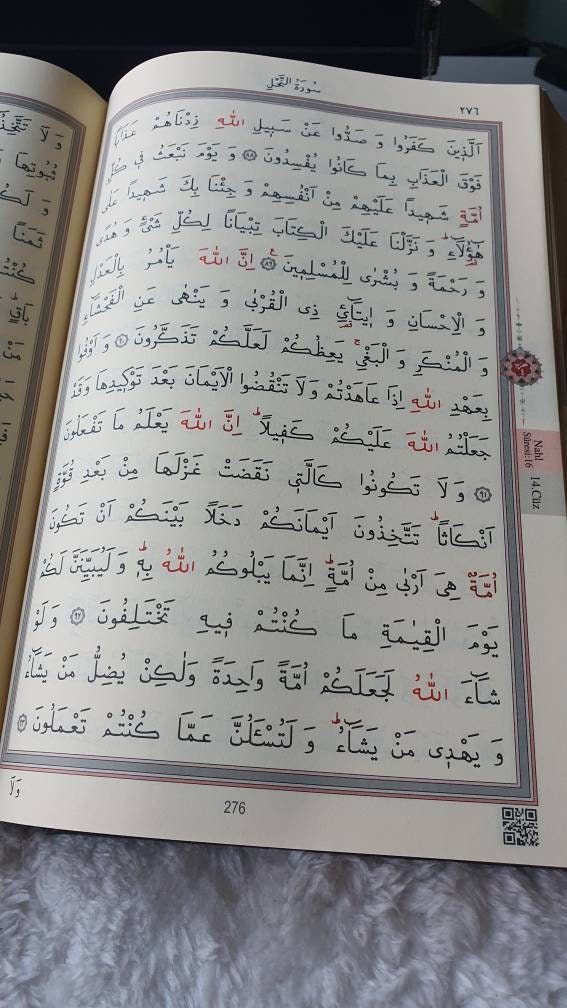 سُورَةُ النَّحْلِ
٢٧٦
اَلَّذِينَ كَفَرُوا وَ صَدُّوا عَنْ سَبِيلِ اللّٰهِ زِدْنَاهُمْ عَذَابًا
فَوْقَ الْعَذَابِ بِمَا كَانُوا يُفْسِدُونَ ﴿٨٨﴾ وَ يَوْمَ نَبْعَثُ فِى كُلِّ
اُمَّةٍ شَهِيدًا عَلَيْهِمْ مِنْ اَنْفُسِهِمْ وَ جِئْنَا بِكَ شَهِيدًا عَلٰى
هٰٓؤُلَٓاءِۜ وَ نَزَّلْنَا عَلَيْكَ الْكِتَابَ تِبْيَانًا لِكُلِّ شَيْءٍ وَ هُدًى
وَ رَحْمَةً وَ بُشْرٰى لِلْمُسْلِمِينَ ﴿٨٩﴾ اِنَّ اللّٰهَ يَأْمُرُ بِالْعَدْلِ
وَ الْاِحْسَانِ وَ اِيتَٓائِ ذِى الْقُرْبٰى وَ يَنْهٰى عَنِ الْفَحْشَٓاءِ
وَ الْمُنْكَرِ وَ الْبَغْيِۚ يَعِظُكُمْ لَعَلَّكُمْ تَذَكَّرُونَ ﴿٩٠﴾ وَ اَوْفُوا
بِعَهْدِ اللّٰهِ اِذَا عَاهَدْتُمْ وَلَا تَنْقُضُوا الْاَيْمَانَ بَعْدَ تَوْكِيدِهَا وَقَدْ
جَعَلْتُمُ اللّٰهَ عَلَيْكُمْ كَفِيلًاۜ اِنَّ اللّٰهَ يَعْلَمُ مَا تَفْعَلُونَ
﴿٩١﴾ وَ لَا تَكُونُوا كَالَّتِى نَقَضَتْ غَزْلَهَا مِنْ بَعْدِ قُوَّةٍ
اَنْكَاثًاۜ تَتَّخِذُونَ اَيْمَانَكُمْ دَخَلًا بَيْنَكُمْ اَنْ تَكُونَ
اُمَّةٌ هِيَ اَرْبٰى مِنْ اُمَّةٍۜ اِنَّمَا يَبْلُوكُمُ اللّٰهُ بِهِۜ وَ لَيُبَيِّنَنَّ لَكُمْ
يَوْمَ الْقِيٰمَةِ مَا كُنْتُمْ فِيهِ تَخْتَلِفُونَ ﴿٩٢﴾ وَ لَوْ
شَٓاءَ اللّٰهُ لَجَعَلَكُمْ اُمَّةً وَاحِدَةً وَلٰكِنْ يُضِلُّ مَنْ يَشَٓاءُ
وَ يَهْدِى مَنْ يَشَٓاءُۜ وَ لَتُسْـَٔلُنَّ عَمَّا كُنْتُمْ تَعْمَلُونَ ﴿٩٣﴾
وَلَا
276
Nahl
Sûresi:16
14.Cüz
وَ لَا تَتَّخِذُ
ثُبُوتِهَا
وَ لَكُ
ثَمَنًا
كُنْتُ
بَاقٍ
مَنْ